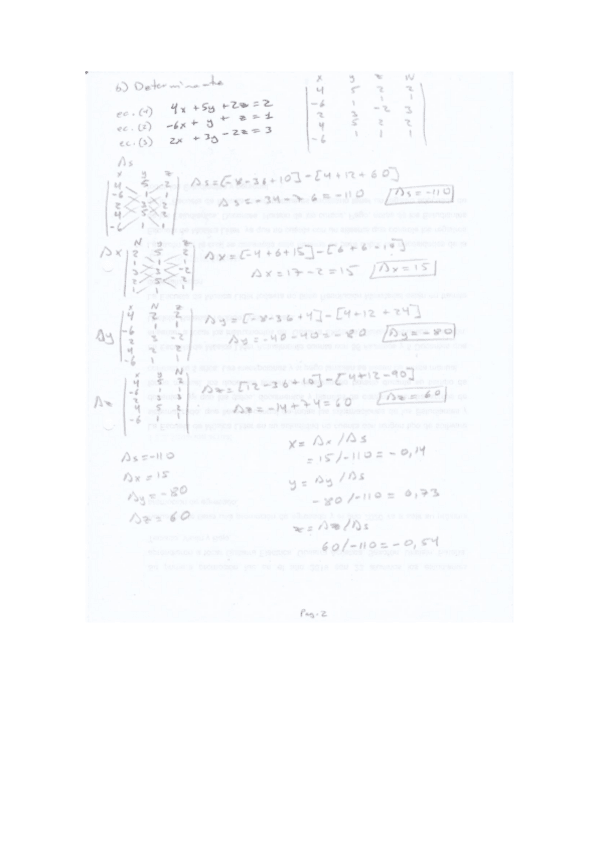 b) Determinante
x y z N
ec. (1) 4x + 5y + 2z = 2
4 5 2 2
ec. (2) -6x + y + z = 1
-6 1 1 1
ec. (3) 2x + 3y - 2z = 3
2 3 -2 3
4 5 2 2
-6 1 1 1
Δs
x y z
4 5 2
-6 1 1
2 3 -2
4 5 2
-6 1 1
Δs = [-8 -36 +10] - [4 +12 +60]
Δs = -34 - 76 = -110 Δs = -110
Δx
N y z
2 5 2
1 1 1
3 3 -2
2 5 2
1 1 1
Δx = [-4 +6 +15] - [6 +6 -10]
Δx = 17 - 2 = 15 Δx = 15
Δy
x N z
4 2 2
-6 1 1
2 3 -2
4 2 2
-6 1 1
Δy = [-8 -36 +4] - [4 +12 +24]
Δy = -40 - 40 = -80 Δy = -80
Δz
x y N
4 5 2
-6 1 1
2 3 3
4 5 2
-6 1 1
Δz = [12 -36 +10] - [4 +12 -90]
Δz = -14 + 74 = 60 Δz = 60
Δs = -110
Δx = 15
Δy = -80
Δz = 60
x = Δx / Δs
= 15 / -110 = -0,14
y = Δy / Δs
-80 / -110 = 0,73
z = Δz / Δs
60 / -110 = -0,54
Pag-2